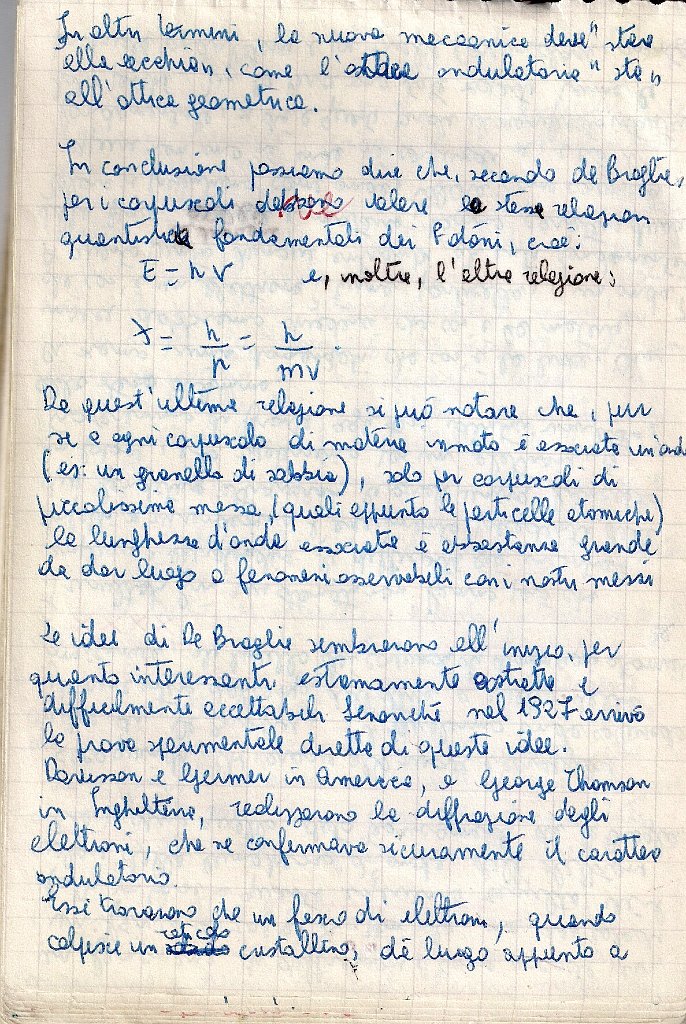 In altri termini, la nuova meccanica deve "stare
alla vecchia", come l'ottica ondulatoria "sta"
all'ottica geometrica.
In conclusione possiamo dire che, secondo de Broglie,
per i corpuscoli debbono valere le stesse relazioni
quantistiche fondamentali dei fotoni, cioè:
E = hν e, inoltre, l'altra relazione:
λ = h/p = h/mv.
Da quest'ultima relazione si può notare che, pur
se a ogni corpuscolo di materia in moto è associata un'onda
(es: un granello di sabbia), solo per corpuscoli di
piccolissima massa, (quali appunto le particelle atomiche)
la lunghezza d'onda associata è abbastanza grande
da dar luogo a fenomeni osservabili con i nostri mezzi
Le idee di De Broglie sembrarono all'inizio, per
quanto interessanti, estremamente astratte e
difficilmente accettabili sennonché nel 1927 arrivò
la prova sperimentale diretta di queste idee.
Davisson e Germer in America, e George Thomson
in Inghilterra, realizzarono la diffrazione degli
elettroni, che ne confermava sicuramente il carattere
ondulatorio.
Essi trovarono che un fascio di elettroni, quando
colpisce un reticolo cristallino, dà luogo appunto a